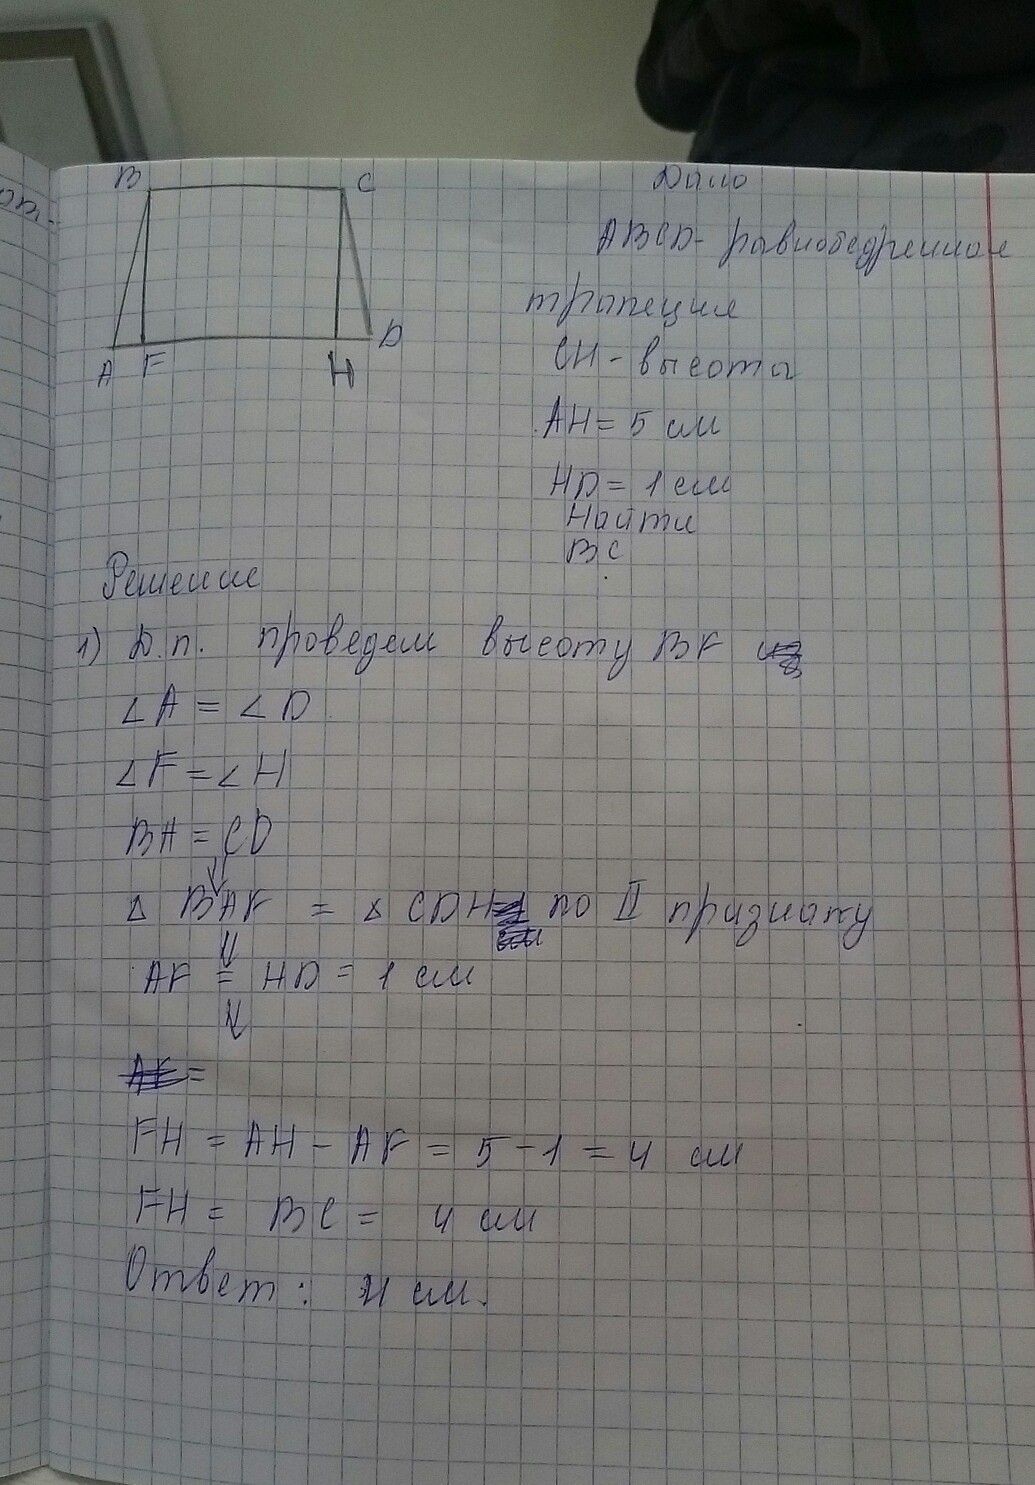 B C
A F H D
Дано
ABCD- равнобедренная
трапеция
CH- высота
AH= 5 см
HD= 1 см
Найти
BC
Решение
1) Д.п. проведем высоту BF
∠A = ∠D
∠F = ∠H
BA = CD
Δ BAF = Δ CDH по II признаку
AF = HD = 1 см
=
FH = AH - AF = 5 - 1 = 4 см
FH = BC = 4 см
Ответ: 4 см.